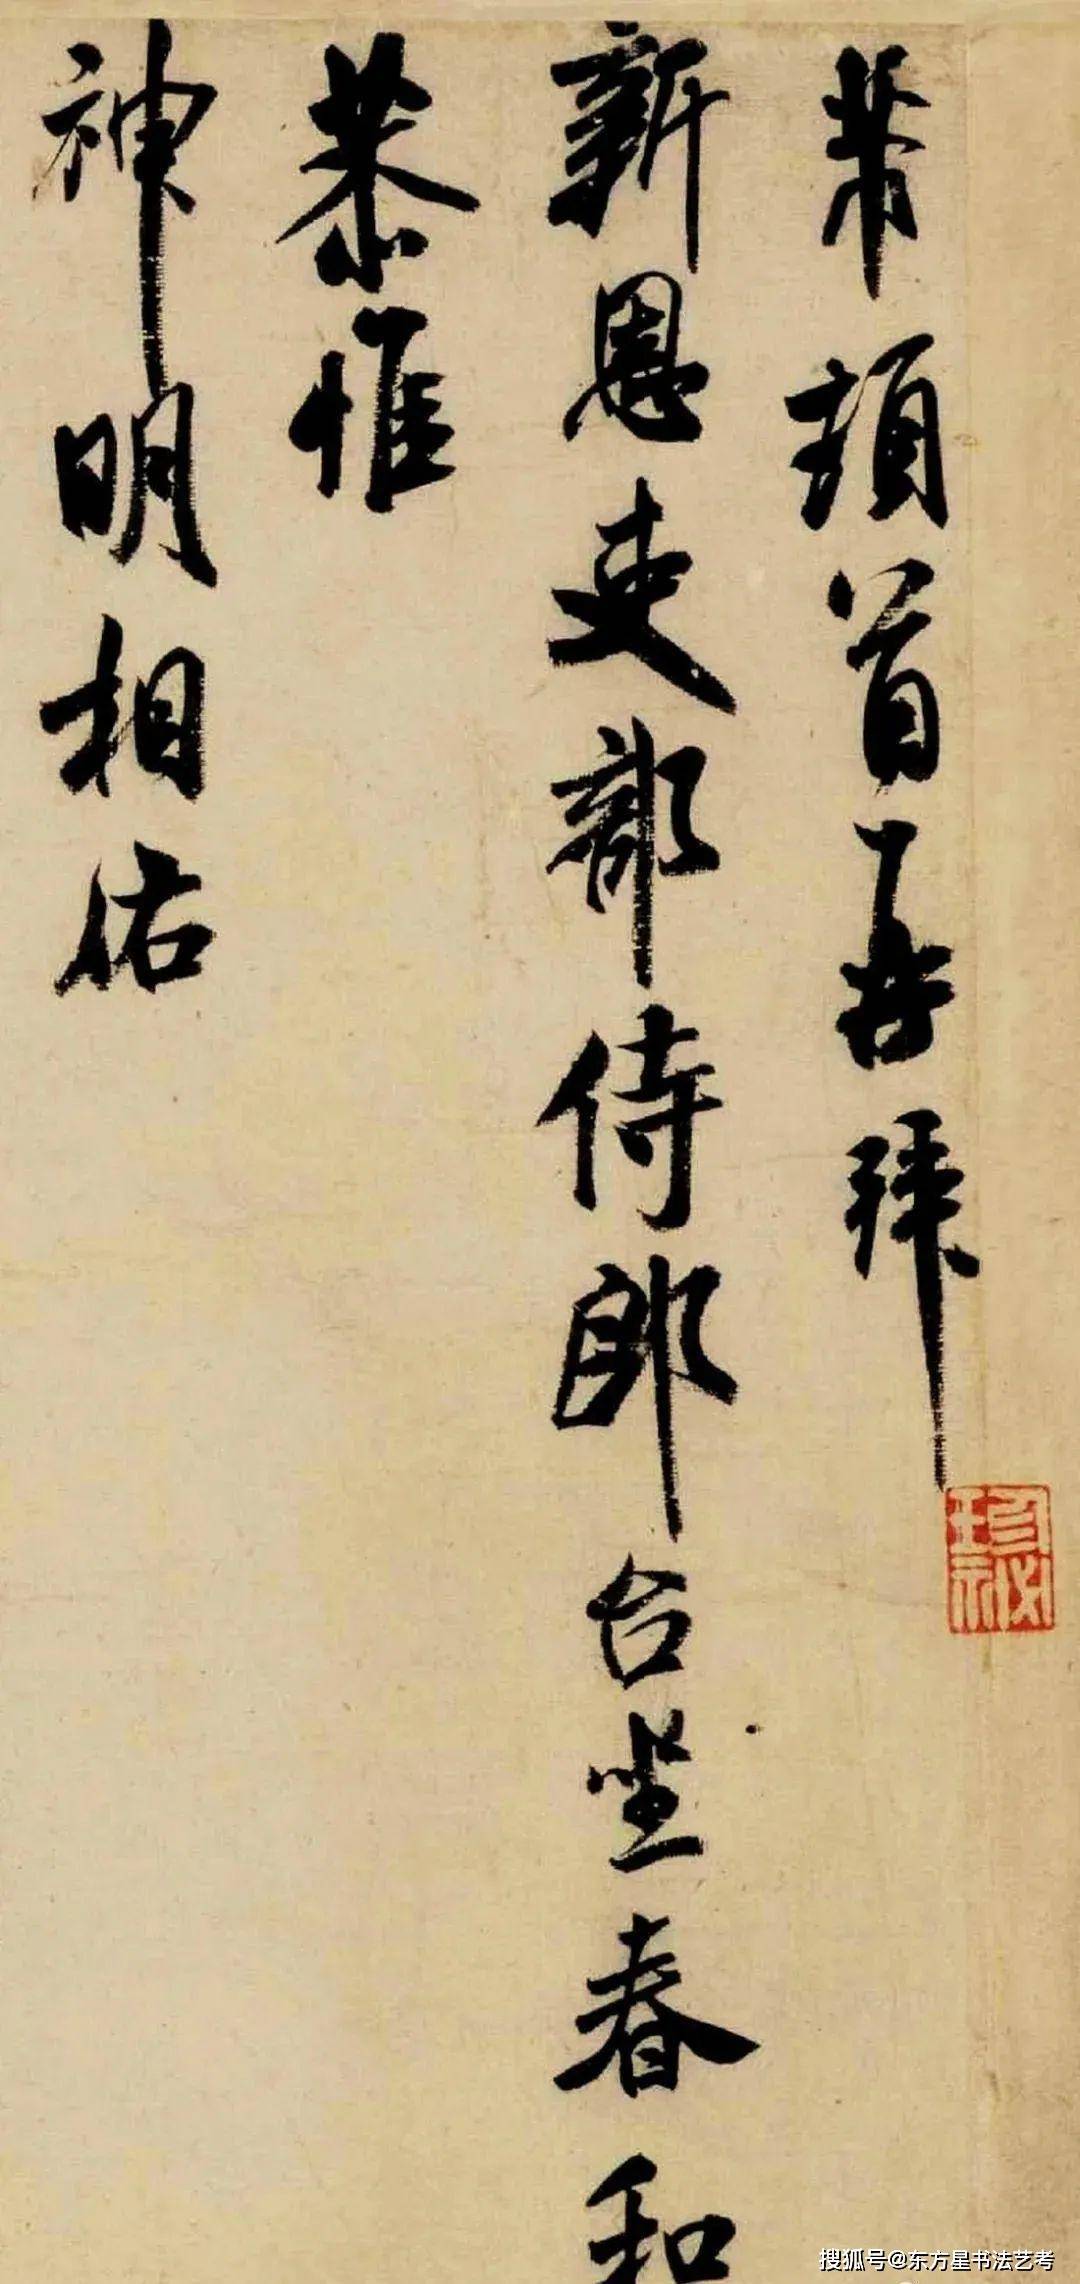 芾頓首再拜
新恩吏部侍郎台坐春和
恭惟
神明相佑
珍祕
搜狐号@东方星书法艺考